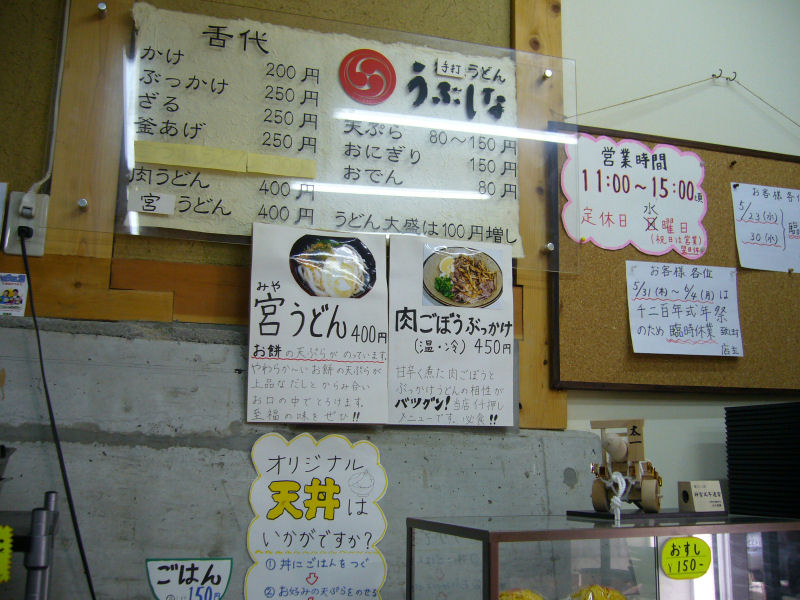 舌代
手打 うどん
うぶしな
かけ 200円
ぶっかけ 250円
ざる 250円
釜あげ 250円
肉うどん 400円
宮うどん 400円
天ぷら 80〜150円
おにぎり 150円
おでん 80円
うどん大盛は100円増し
みや
宮うどん 400円
お餅の天ぷらがのっています。
やわらか〜いお餅の天ぷらが
上品なだしとからみ合い
お口の中でとろけます。
至福の味をぜひ!!
肉ごぼうぶっかけ
(温・冷) 450円
甘辛く煮た肉ごぼうと
ぶっかけうどんの相性が
バツグン!当店イチ押し
メニューです。必食!!
営業時間
11:00〜15:00頃
定休日 水曜日
(祝日は営業)
翌日休
お客様各位
5/23(水)
30(水)
臨
お客様各位
5/31(木)〜6/4(月)は
千二百年式年祭
のため臨時休業致します
店主
オリジナル
天丼は
いかがですか?
① 丼にごはんをつぐ
② お好みの天ぷらをのせる
ごはん
150円
太一
おすし
¥150-